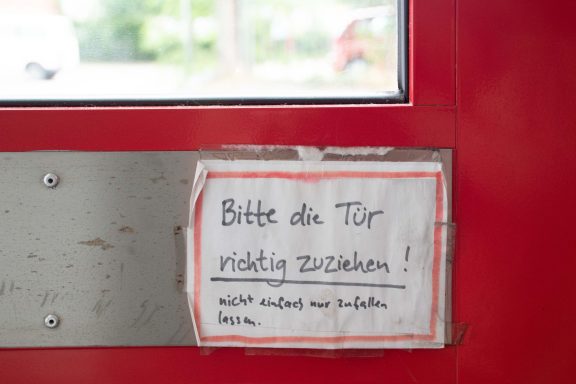 Bitte die Tür
richtig zuziehen!
nicht einfach nur zufallen
lassen.